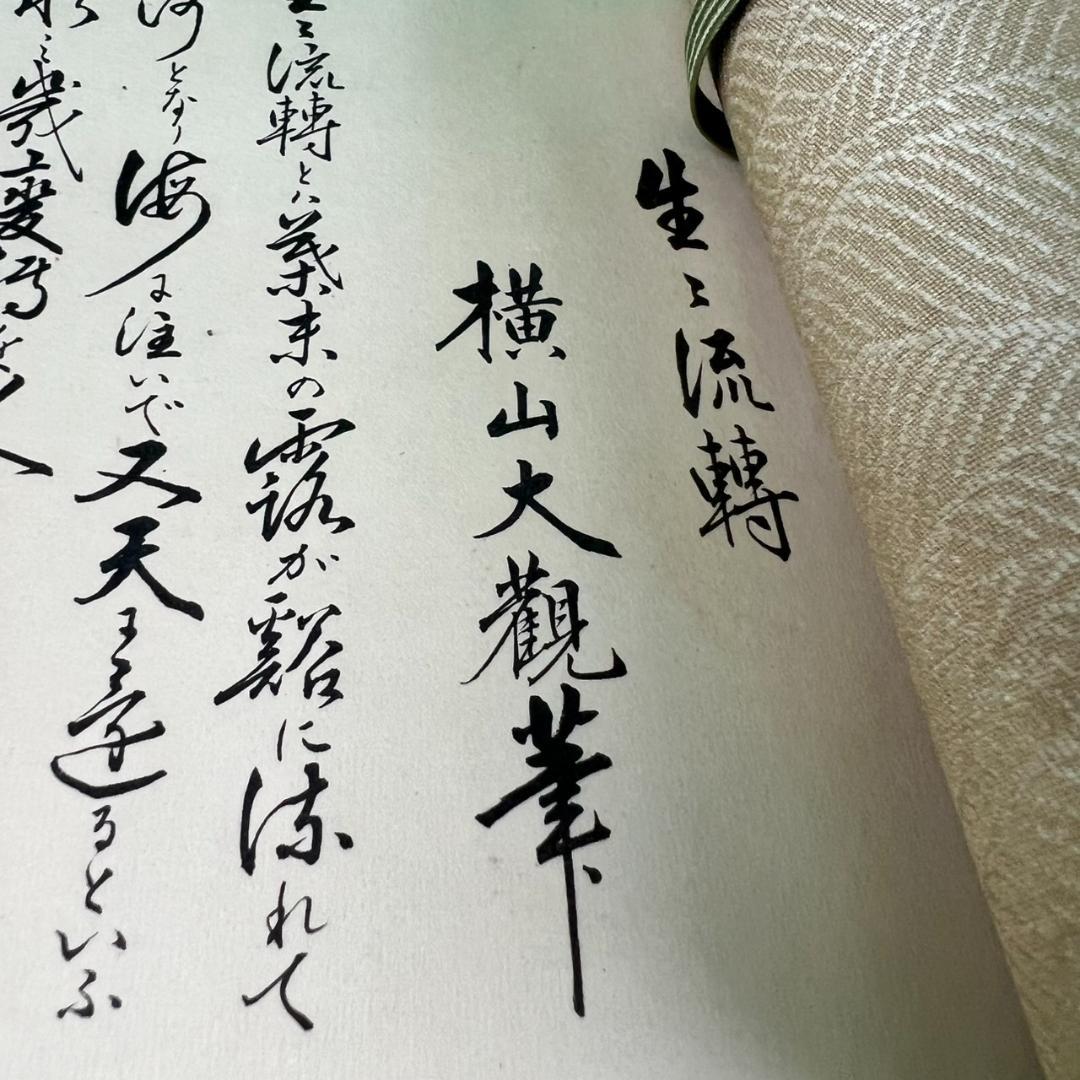 生〻流轉
横山大觀筆
生〻流轉とハ葉末の露が谿に流れて
河となり海に注いで又天に還るといふ
歳變